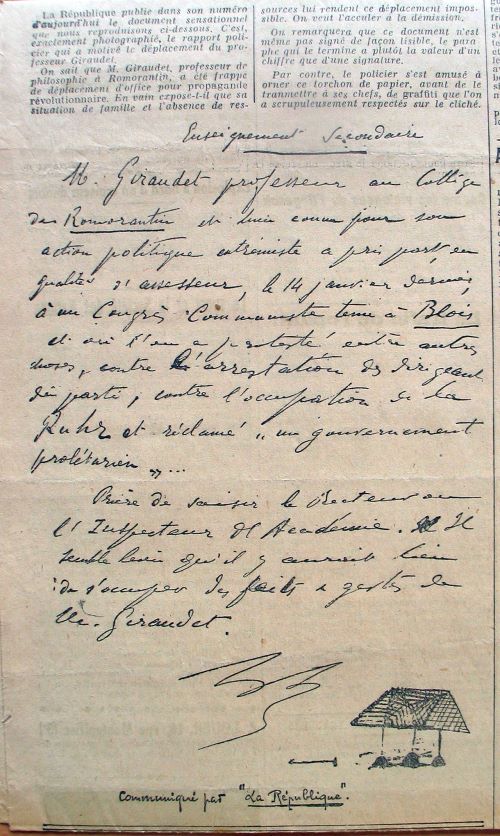 La République publie dans son numéro
d'aujourd'hui le document sensationnel
que nous reproduisons ci-dessous. C'est,
exactement photographié, le rapport poli-
cier qui a motivé le déplacement du pro-
fesseur Giraudet.
On sait que M. Giraudet, professeur de
philosophie à Romorantin, a été frappé
de déplacement d'office pour propagande
révolutionnaire. En vain expose-t-il que sa
situation de famille et l'absence de res-
sources lui rendent ce déplacement impos-
sible. On veut l'acculer à la démission.
On remarquera que ce document n'est
même pas signé de façon lisible, le para-
phe qui le termine a plutôt la valeur d'un
chiffre que d'une signature.
Par contre, le policier s'est amusé à
orner ce torchon de papier, avant de le
transmettre à ses chefs, de graffiti que l'on
a scrupuleusement respectés sur le cliché.
Enseignement Secondaire
M. Giraudet professeur au Collège
de Romorantin et bien connu pour son
action politique extrémiste a pris part en
qualité d'assesseur, le 14 janvier dernier
à un Congrès Communiste tenu à Blois
et où l'on a protesté entre autres
choses, contre l'arrestation des dirigeants
du parti, contre l'occupation de la
Ruhr et réclamé "un gouvernement
prolétarien"...
Prière de saisir le Recteur ou
l'Inspecteur d'Académie. Il
semble bien qu'il y aurait lieu
de s'occuper des faits & gestes de
M. Giraudet.
Communiqué par "La République".